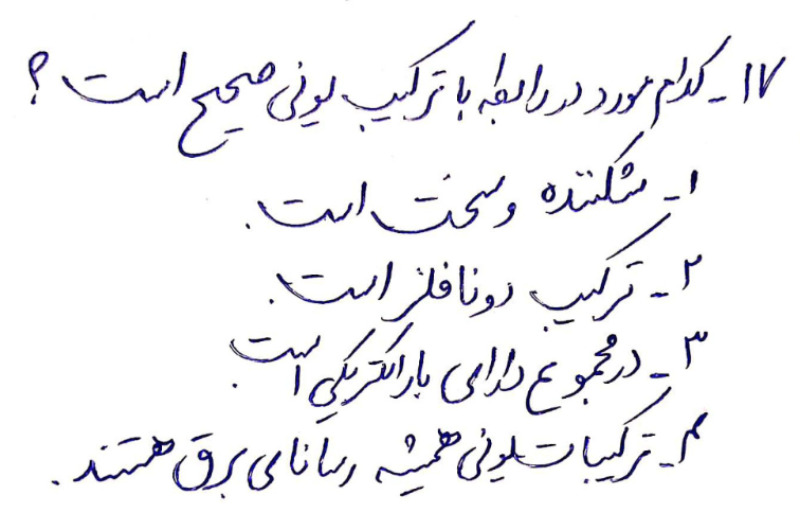 ۱۷- کدام مورد در رابطه با ترکیب یونی صحیح است ؟
۱- شکننده و سخت است.
۲- ترکیب دو نافلز است.
۳- در مجموع دارای بار الکتریکی است.
۴- ترکیبات یونی همیشه رسانای برق هستند.